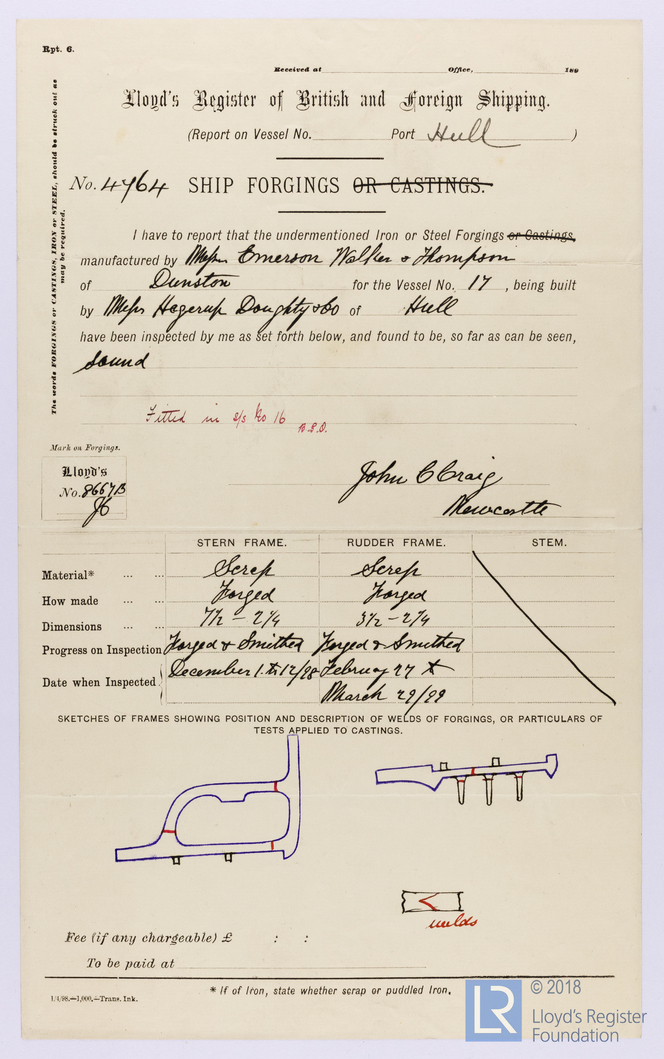 Rpt. 6.
Received at Office, 189
Lloyd's Register of British and Foreign Shipping.
(Report on Vessel No. Port Hull )
The words FORGINGS or CASTINGS, IRON or STEEL, should be struck out as
may be required.
No. 4764 SHIP FORGINGS OR CASTINGS.
I have to report that the undermentioned Iron or Steel Forgings or Castings,
manufactured by Messrs Emerson Walker & Thompson
of Dunston for the Vessel No. 17 , being built
by Messrs Hagerup Doughty & Co of Hull
have been inspected by me as set forth below, and found to be, so far as can be seen,
sound
Fitted in s/s No 16
Mark on Forgings.
Lloyd's
No. 8667B
John C Craig
Newcastle
STERN FRAME. RUDDER FRAME. STEM.
Material* ... ... Scrap Scrap
How made ... ... Forged Forged
Dimensions ... ... 7½ - 2¼ 3½ - 2¼
Progress on Inspection Forged & Smithed Forged & Smithed
Date when Inspected December 1. to 12/98 February 27 to
March 29/99
SKETCHES OF FRAMES SHOWING POSITION AND DESCRIPTION OF WELDS OF FORGINGS, OR PARTICULARS OF
TESTS APPLIED TO CASTINGS.
welds
Fee (if any chargeable) £ : :
To be paid at
* If of Iron, state whether scrap or puddled Iron.
1/4/98.—1,000.—Trans. Ink.
LR
© 2018
Lloyd's Register
Foundation